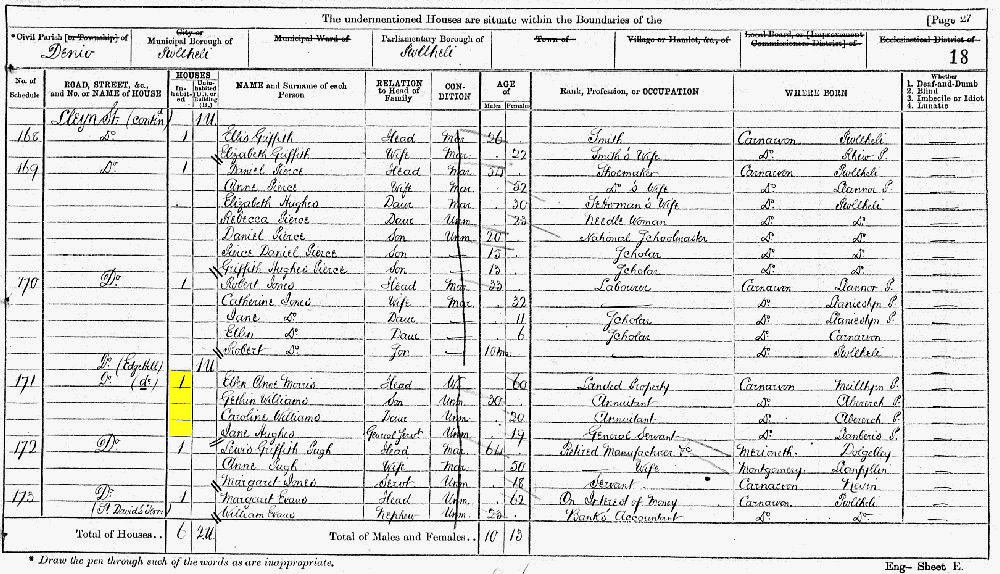 The undermentioned Houses are situate within the Boundaries of the [Page 27
*Civil Parish [or Township] of City or Municipal Borough of Municipal Ward of Parliamentary Borough of Town of Village or Hamlet, &c., of Local Board, or [Improvement Commissioners District] of Ecclesiastical District of
Denio Pwllheli Pwllheli 18
No. of Schedule ROAD, STREET, &c., and No. or NAME of HOUSE HOUSES Inhabited Uninhabited (U.), or Building (B.) NAME and Surname of each Person RELATION to Head of Family CONDITION AGE of Males Females Rank, Profession, or OCCUPATION WHERE BORN Whether 1. Deaf-and-Dumb 2. Blind 3. Imbecile or Idiot 4. Lunatic
Lleyn St. (contin) 1U
168 Do 1 Ellis Griffith Head Mar 26 Smith Carnarvon Pwllheli
Elizabeth Griffith Wife Mar 22 Smith's Wife Do Rhiw P.
169 Do 1 Daniel Pierce Head Mar Shoemaker Carnarvon Pwllheli
Anne Pierce Wife Mar 52 Do's Wife Do Llannor P.
Elizabeth Hughes Daur Mar 30 Wife Do Pwllheli
Rebecca Pierce Daur Unm 23 Needle Woman Do Do
Daniel Pierce Son Unm 20 National Schoolmaster Do Do
Pierce Daniel Pierce Son 15 Scholar Do Do
Griffith Hughes Pierce Son 13 Scholar Do Do
170 Do 1 Robert Jones Head Mar 33 Labourer Carnarvon Llannor P.
Catherine Jones Wife Mar 32 Do Llaniestyn P.
Jane Do Daur 11 Scholar Do Llaniestyn P.
Ellen Do Daur 6 Scholar Do Carnarvon
Robert Do Son 10m Do Pwllheli
Do (Edge Hill) 1U
171 Do (do) 1 Ellen Anne Morris Head W 60 Landed Property Carnarvon P.
Gethin Williams Son Unm 30 Annuitant Do Abererch P.
Caroline Williams Daur Unm 20 Annuitant Do Abererch P.
Jane Hughes General Servt Unm 19 General Servant Do Llanberis P.
172 Do 1 Lewis Griffith Pugh Head Mar 64 Retired Manufacturer &c Merioneth Dolgelley
Anne Pugh Wife Mar 50 Wife Montgomery Llanfyllin
Margaret Jones Servt Unm 18 Servant Carnarvon Nevin
173 Do 1 Margaret Evans Head Unm 62 On Interest of Money Carnarvon Pwllheli
(St David's Terr) William Evans Nephew Unm 23 Bank's Accountant Do Do
Total of Houses.. 6 2U Total of Males and Females.. 10 13
* Draw the pen through such of the words as are inappropriate. Eng- Sheet E.